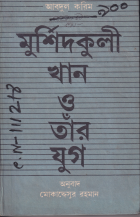 আবদুল করিম
৯০০
মুর্শিদকুলী
খান
ও
তাঁর
যুগ
অনুবাদ
মোকাদ্দেসুর রহমান